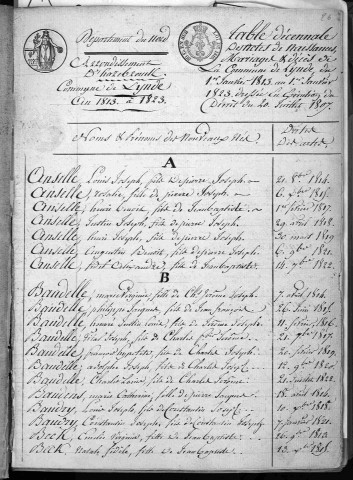 Département du Nord
Arrondissement
D'hazebrouck
Commune de Lynde
Cin 1813. à 1823.
table décennale
Des actes de naissances
Mariages & décès de
La Commune de Lynde, du
1er Janvier 1813. au 1er Janvier
1823. dressée en exécution du
Décret du 20 Juillet 1807.
Noms & prénoms des Nouveaux Nés
Dates
Des actes
A
Anselle, Louis Joseph, fils de pierre Joseph 20 8bre 1814.
Anselle, rosalie, fille de pierre Joseph 6 1815.
Anselle, fils de Jean baptiste 1er février 1817.
Anselle, Justin Joseph, fils de pierre Joseph 29 avril 1818.
Anselle, henri Joseph, fils de pierre Joseph 30 août 1819
Anselle, Augustin Benoit, fils de pierre Joseph 6. 9bre 1821.
Anselle, fidel fils de Jean baptiste 14. 9bre 1822.
B
Baudelle, marie Virginie, fille de Jérôme Joseph 7. avril 1814.
Baudelle, philippe Jacques, fils de Jean françois 26 Juin 1815.
Baudelle, henri Louis, fils de Jérôme Joseph 11 février 1816.
Baudelle, Joseph, fils de Charles Jérôme 21 9bre 1817.
Baudelle, françois fils de Charles Joseph 20 février 1819.
Baudelle, adolphe Joseph, fils de Charles Joseph 12. 9bre 1820.
Baudelle, Charles Louis, fils de Charles Jérôme 1822.
Bauens, marie Catherine, fille de pierre Jacques 18. avril 1814.
Baudry, Louis Joseph, fils de Constantin Joseph 10. 9bre 1818.
Baudry, Constantin Joseph, fils de Constantin Joseph 7 Janvier 1821.
Beek, Emélie Virginie, fille de Jean baptiste 20 9bre 1813.
Beek, Natalie fidèle, fille de Jean baptiste 13. 9bre 1818.